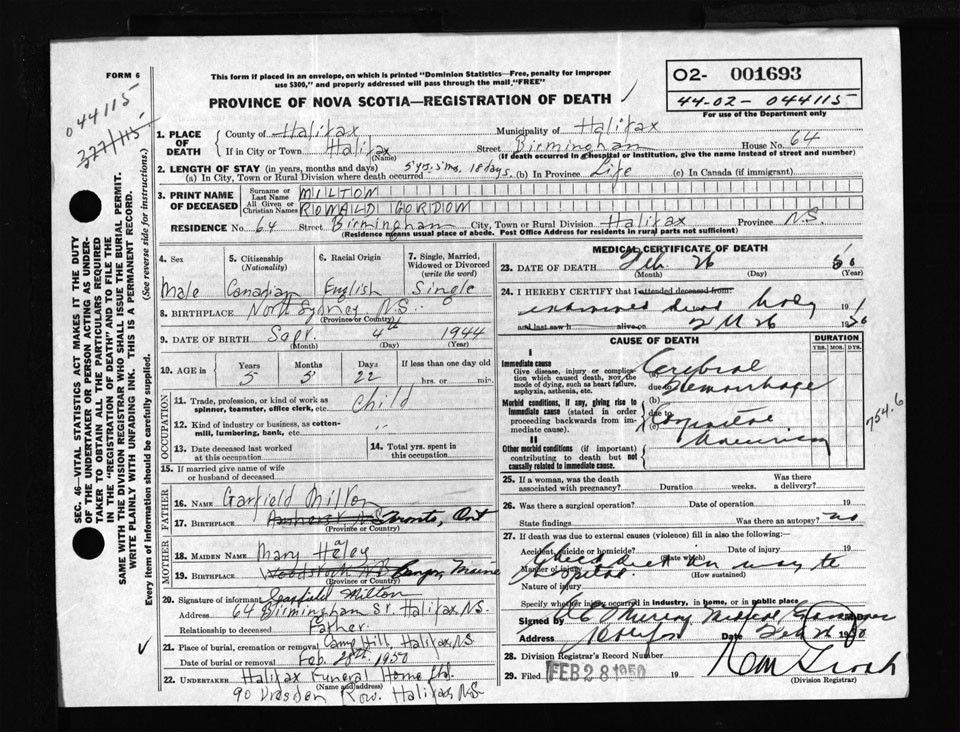 FORM 6
This form if placed in an envelope, on which is printed "Dominion Statistics—Free, penalty for improper
use $300," and properly addressed will pass through the mail "FREE"
PROVINCE OF NOVA SCOTIA—REGISTRATION OF DEATH
O2- 001693
44-02- 044115
For use of the Department only
044115
327/115
SEC. 46—VITAL STATISTICS ACT MAKES IT THE DUTY
OF THE UNDERTAKER OR PERSON ACTING AS UNDER-
TAKER TO OBTAIN ALL THE PARTICULARS REQUIRED
IN THE "REGISTRATION OF DEATH" AND TO FILE THE
SAME WITH THE DIVISION REGISTRAR WHO SHALL ISSUE THE BURIAL PERMIT.
WRITE PLAINLY WITH UNFADING INK. THIS IS A PERMANENT RECORD.
Every item of information should be carefully supplied. (See reverse side for instructions.)
1. PLACE OF DEATH County of Halifax Municipality of Halifax
If in City or Town Halifax Street Birmingham House No. 64
(Name) (If death occurred in a hospital or institution, give the name instead of street and number)
2. LENGTH OF STAY (in years, months and days)
(a) In City, Town or Rural Division where death occurred 5 yrs. 5 ms. 18 days. (b) In Province Life (c) In Canada (if immigrant)
3. PRINT NAME OF DECEASED Surname or Last Name MILTON
All Given or Christian Names ROWALD GORDON
RESIDENCE No. 64 Street Birmingham City, Town or Rural Division Halifax Province N.S
(Residence means usual place of abode. Post Office Address for residents in rural parts not sufficient)
4. Sex 5. Citizenship (Nationality) 6. Racial Origin 7. Single, Married, Widowed or Divorced (write the word)
Male Canadian English Single
8. BIRTHPLACE North Sydney N.S.
(Province or Country)
9. DATE OF BIRTH Sept. 4th 1944
(Month) (Day) (Year)
10. AGE in Years Months Days If less than one day old
5 5 22 hrs. or min.
OCCUPATION
11. Trade, profession, or kind of work as
spinner, teamster, office clerk, etc. Child
12. Kind of industry or business, as cotten-
mill, lumbering, bank, etc.
13. Date deceased last worked
at this occupation
14. Total yrs. spent in
this occupation
15. If married give name of wife
or husband of deceased
FATHER
16. NAME Garfield Milton
17. BIRTHPLACE Amherst N.S. Toronto, Ont
(Province or Country)
MOTHER
18. MAIDEN NAME Mary Haley
19. BIRTHPLACE Woodstock N.B. Bangor, Maine
(Province or Country)
20. Signature of informant Garfield Milton
Address 64 Birmingham St. Halifax, N.S.
Relationship to deceased Father.
21. Place of burial, cremation or removal Camp Hill, Halifax, N.S
Date of burial or removal Feb. 28th, 1950
22. UNDERTAKER Halifax Funeral Home Ltd.
(Name and address)
90 Dresden Row. Halifax, N.S.
MEDICAL CERTIFICATE OF DEATH
23. DATE OF DEATH Feb. 26
(Month) (Day) (Year)
24. I HEREBY CERTIFY that I attended deceased from:
examined dead body 19
and last saw h alive on 26 19
CAUSE OF DEATH
DURATION
YRS. MOS. DYS.
I
Immediate cause
Give disease, injury or complica-
tion which caused death, not the
mode of dying, such as heart failure,
asphyxia, asthenia, etc.
(a) Cerebral
due to Hemorrhage
Morbid conditions, if any, giving rise to
immediate cause (stated in order
proceeding backwards from im-
mediate cause).
(b)
(c)
II
Other morbid conditions (if important)
contributing to death but not
causally related to immediate cause.
754.6
25. If a woman, was the death
associated with pregnancy? Duration weeks. Was there
a delivery?
26. Was there a surgical operation? Date of operation 19
State findings Was there an autopsy? no
27. If death was due to external causes (violence) fill in also the following:
Accident, suicide or homicide? Date of injury 19
(State which)
Manner of injury
(How sustained)
Nature of injury
Specify whether injury occurred in industry, in home, or in public place
Signed by
Address Halifax Date Feb 26 1950
28. Division Registrar's Record Number
29. Filed FEB 28 1950 19
(Division Registrar)